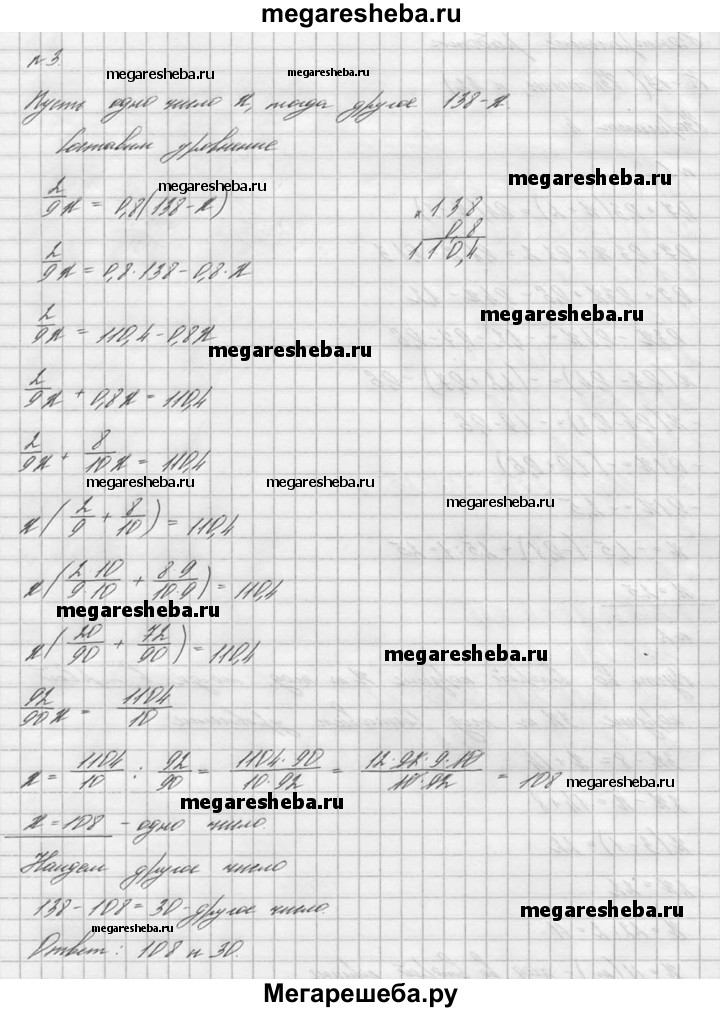 megaresheba.ru
№3.
megaresheba.ru megaresheba.ru
Пусть одно число x, тогда другое 138-x.
Составим уравнение
2/9 x = 0,8(138-x) megaresheba.ru megaresheba.ru
× 138
0,8
110,4
2/9 x = 0,8·138-0,8·x
2/9 x = 110,4-0,8x megaresheba.ru
megaresheba.ru
2/9 x + 0,8x = 110,4
2/9 x + 8/10 x = 110,4
megaresheba.ru megaresheba.ru
megaresheba.ru
x(2/9 + 8/10) = 110,4
x(2·10/9·10 + 8·9/10·9) = 110,4
megaresheba.ru
x(20/90 + 72/90) = 110,4 megaresheba.ru
92/90 x = 1104/10
x = 1104/10 : 92/90 = 1104·90/10·92 = 12·92·9·10/10·92 = 108 megaresheba.ru
megaresheba.ru
x = 108 - одно число.
Найдем другое число
138-108=30-другое число.
megaresheba.ru megaresheba.ru
Ответ: 108 и 30.
Мегарешеба.ру